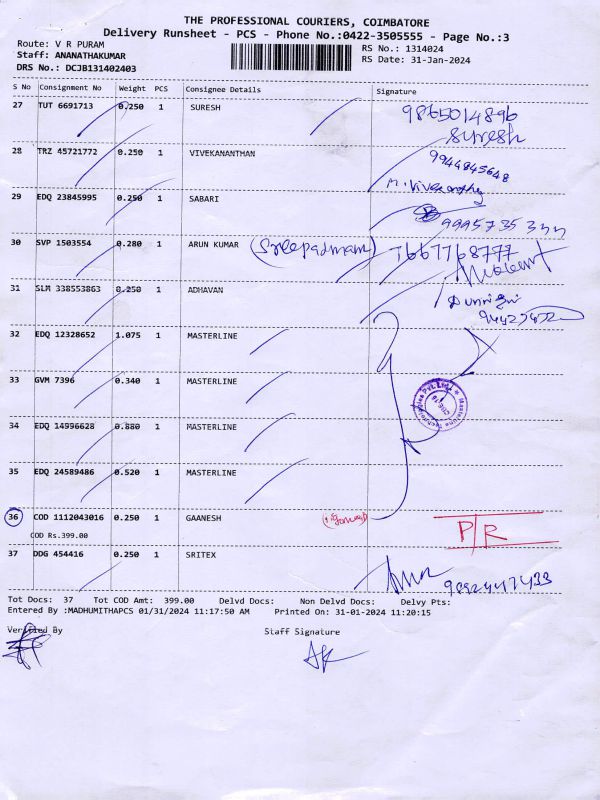 THE PROFESSIONAL COURIERS, COIMBATORE
Delivery Runsheet - PCS - Phone No.:0422-3505555 - Page No.:3
Route: V R PURAM
Staff: ANANATHAKUMAR
DRS No.: DCJB131402403
RS No.: 1314024
RS Date: 31-Jan-2024
S No Consignment No Weight PCS Consignee Details Signature
27 TUT 6691713 0.250 1 SURESH 9865014896
Suresh
28 TRZ 45721772 0.250 1 VIVEKANANTHAN 9944845648
M. Vivekananthy
29 EDQ 23845995 0.250 1 SABARI
30 SVP 1503554 0.280 1 ARUN KUMAR (Sreepadmam) 7667768777
31 SLM 338553863 0.250 1 ADHAVAN
32 EDQ 12328652 1.075 1 MASTERLINE
33 GVM 7396 0.340 1 MASTERLINE
34 EDQ 14996628 0.880 1 MASTERLINE
35 EDQ 24589486 0.520 1 MASTERLINE
36 COD 1112043016 0.250 1 GAANESH P/R
COD Rs.399.00
37 DDG 454416 0.250 1 SRITEX 9092447433
Tot Docs: 37 Tot COD Amt: 399.00 Delvd Docs: Non Delvd Docs: Delvy Pts:
Entered By :MADHUMITHAPCS 01/31/2024 11:17:50 AM Printed On: 31-01-2024 11:20:15
Verified By Staff Signature